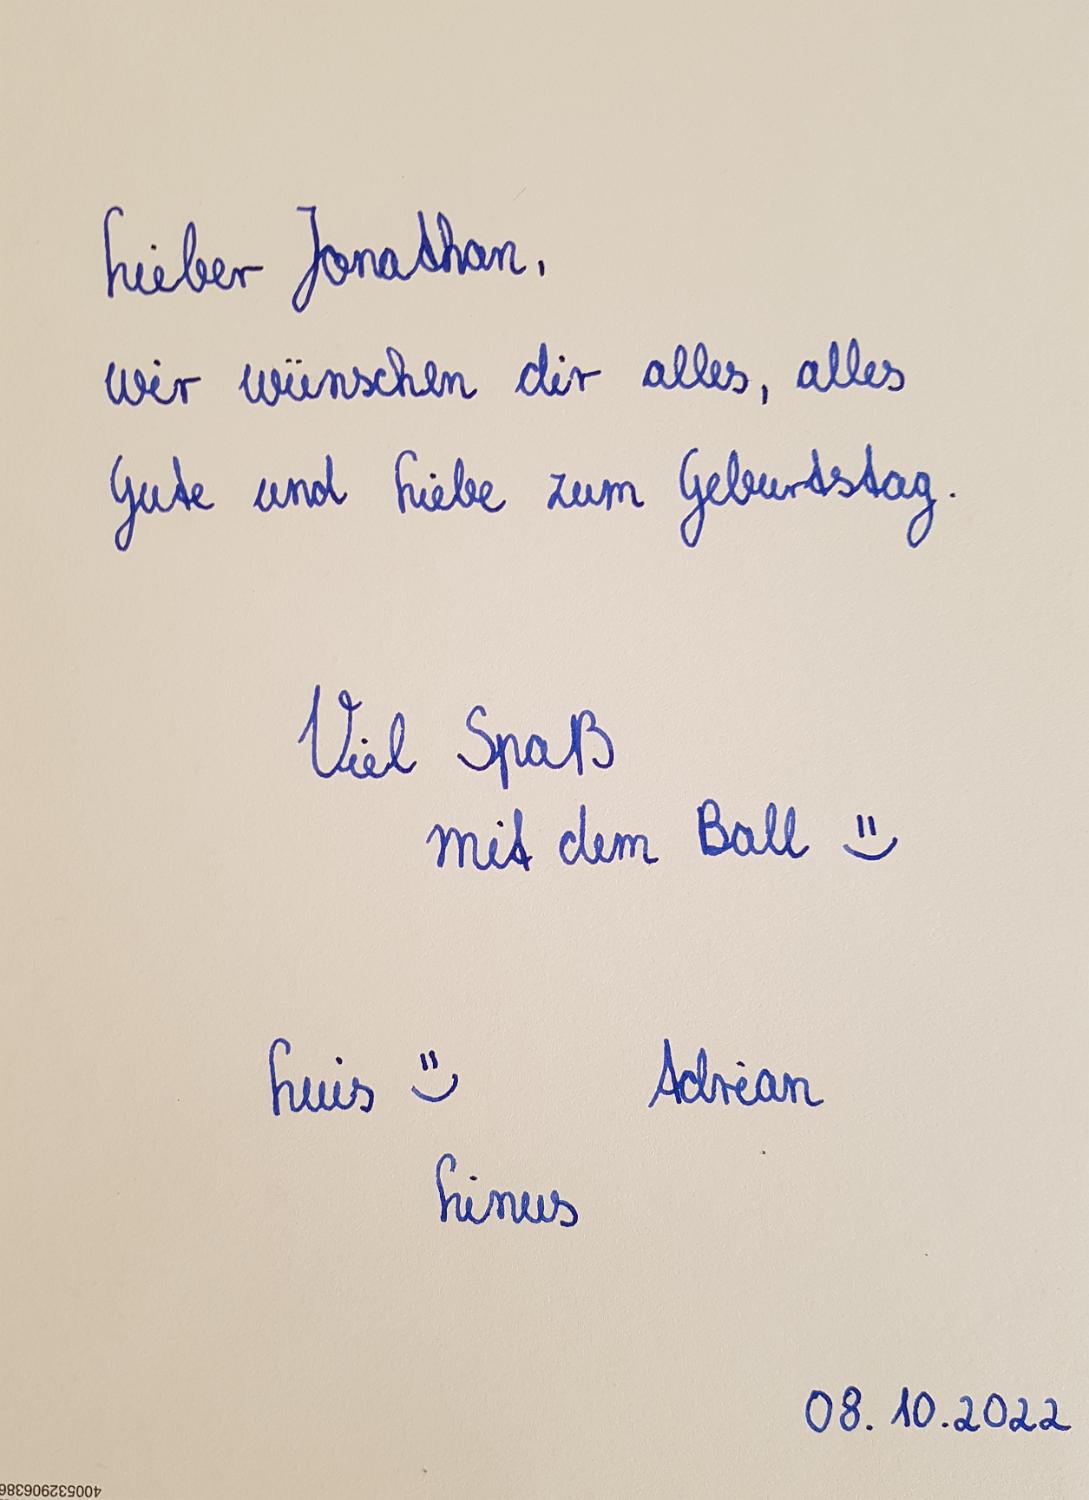 Lieber Jonathan,
wir wünschen dir alles, alles
Gute und Liebe zum Geburtstag.
Viel Spaß
mit dem Ball :)
Luis :) Adrian
Linus
08.10.2022
400532906386